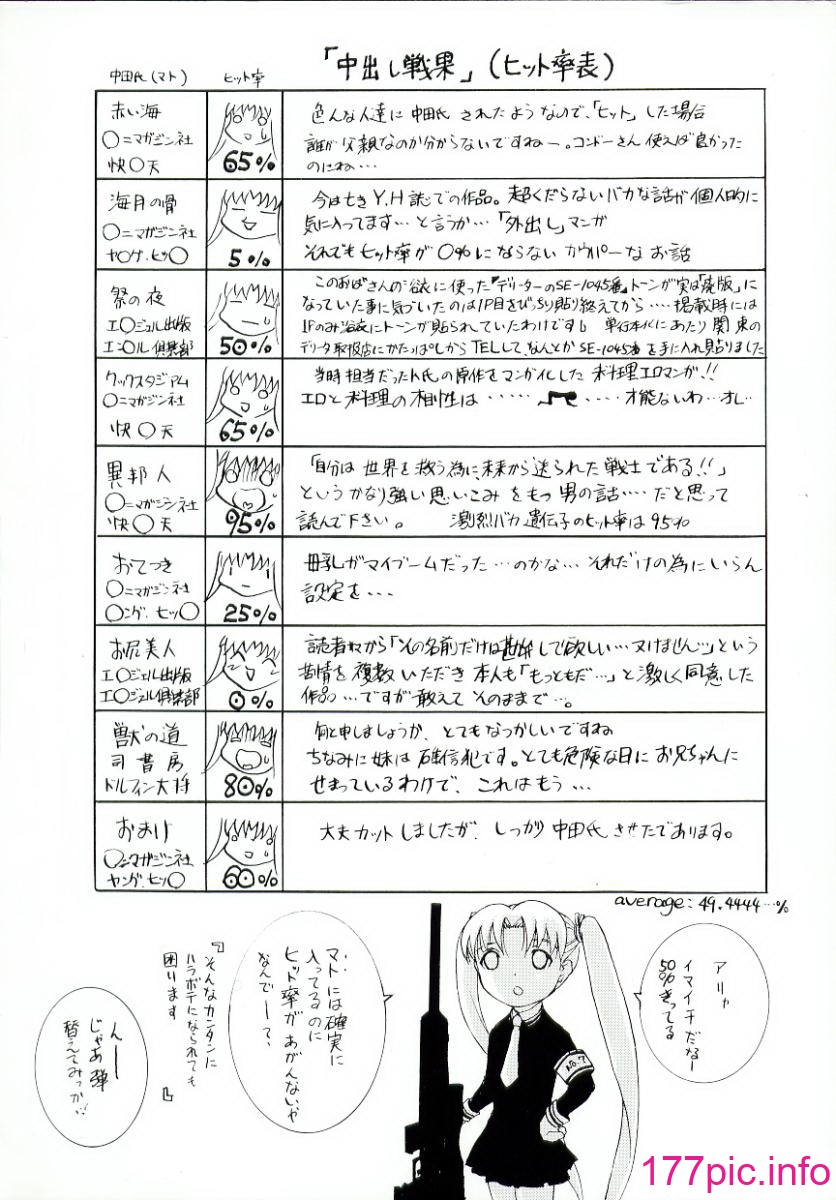 「中出し戦果」(ヒット率表)
中田氏(マト)
ヒット率
赤い海
○ニマガジン社
快○天
65%
色んな人達に中田氏されたようなので、「ヒット」した場合
誰が父親なのか分からないですねー。コンドーさん使えば良かった
のにね…
海月の骨
○ニマガジン社
ヤ○グ・ヒッ○
5%
今は亡きY.H誌での作品。超くだらないバカな話が個人的に
気に入ってます…と言うか…「外出し」マンガ
それでもヒット率が0%にならないカウパーなお話
祭の夜
エ○ジェル出版
エン○ル倶楽部
50%
このおばさんの浴衣に使った『デリーターのSE-1045番』トーンが実は「廃版」に
なっていた事に気づいたのは1P目をびっちり貼り終えてから…掲載時には
1Pのみ浴衣にトーンが貼られていたわけです。単行本化にあたり関東の
デリータ取扱店にかたっぱしからTELして、なんとかSE-1045番を手に入れ貼りました
クックスタジアム
○ニマガジン社
快○天
65%
当時担当だったト氏の原作をマンガ化した料理エロマンガ!!
エロと料理の相性は・・・・・ ・・・・才能ないわ…オレ…
異邦人
○ニマガジン社
快○天
95%
「自分は世界を救う為に未来から送られた戦士である!!」
というかなり強い思いこみをもつ男の話…だと思って
読んで下さい。 激烈バカ遺伝子のヒット率は95%
おてつき
○ニマガジン社
○ング・ヒッ○
25%
母乳がマイブームだった…のかな…それだけの為にいらん
設定を…
お尻美人
エ○ジェル出版
エ○ジェル倶楽部
0%
読者様から「その名前だけは勘弁して欲しい…ヌけません…」という
苦情を複数いただき本人も「もっともだ…」と激しく同意した
作品…ですが敢えてそのままで…。
獣の道
司書房
ドルフィン大将
80%
何と申しましょうか、とてもなつかしいですね
ちなみに妹は確信犯です。とても危険な日にお兄ちゃんに
せまっているわけで、これはもう…
おまけ
○ニマガジン社
ヤング・ヒッ○
60%
大丈カットしましたが、しっかり中田氏させたであります。
average: 49.4444…%
アリャ
イマイチだなー
50%きってる
マトには確実に
入ってるのに
ヒット率が
あがんないや
なんでーて、
『そんなカンタンに
ハラボテになられても
困ります』
んー
じゃあ弾
替えてみっか…
177pic.info